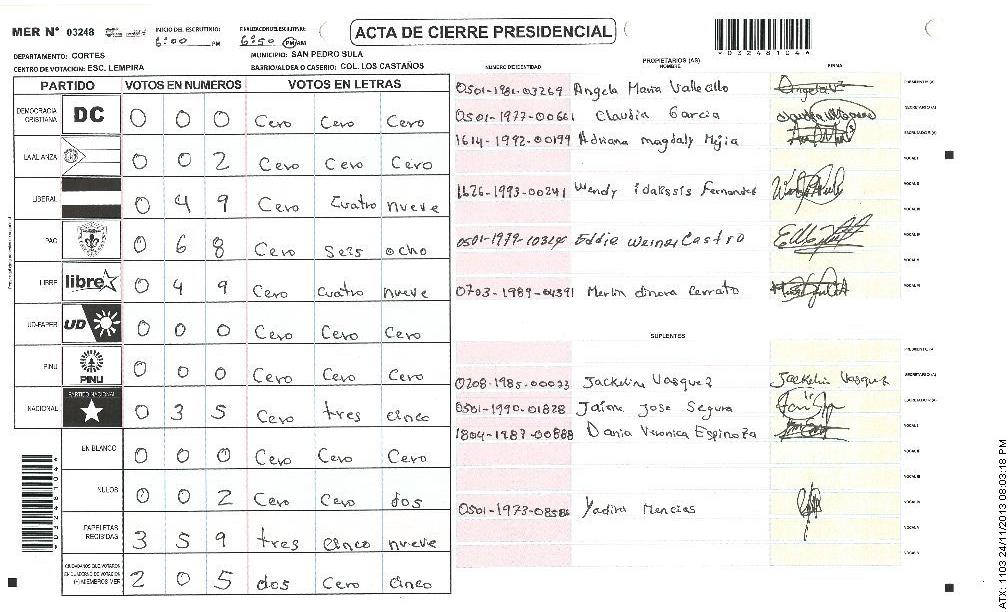 MER Nº 03248 INICIO DEL ESCRUTINIO: 6:00 PM FINALIZACION DEL ESCRUTINIO: 6:50 PM/AM ACTA DE CIERRE PRESIDENCIAL
DEPARTAMENTO: CORTES MUNICIPIO: SAN PEDRO SULA
CENTRO DE VOTACION: ESC. LEMPIRA BARRIO/ALDEA O CASERIO: COL. LOS CASTAÑOS
PARTIDO VOTOS EN NUMEROS VOTOS EN LETRAS
DEMOCRACIA CRISTIANA DC 0 0 0 Cero Cero Cero
LA ALIANZA 0 0 2 Cero Cero Cero
LIBERAL 0 4 9 Cero Cuatro nueve
PAC 0 6 8 Cero Seis ocho
LIBRE libre 0 4 9 Cero Cuatro nueve
UD-FAPER UD 0 0 0 Cero Cero Cero
PINU PINU 0 0 0 Cero Cero Cero
NACIONAL PARTIDO NACIONAL 0 3 5 Cero tres cinco
EN BLANCO 0 0 0 Cero Cero Cero
NULOS 0 0 2 Cero Cero dos
PAPELETAS RECIBIDAS 3 5 9 tres cinco nueve
CIUDADANOS QUE VOTARON EN CUADERNO DE VOTACION (+) MIEMBROS MER 2 0 5 dos Cero cinco
NUMERO DE IDENTIDAD PROPIETARIOS (AS) NOMBRE FIRMA
0501-1981-03269 Angela Maria Vallecillo PRESIDENTE (A)
0501-1977-00661 Claudia Garcia SECRETARIO (A)
1614-1992-00199 Adriana magdaly Mejia ESCRUTADOR (A)
VOCAL I
1626-1993-00241 Wendy idalissis Fernandez VOCAL II
VOCAL III
Eddie Weiner Castro VOCAL IV
VOCAL V
0703-1989-04391 Merlin dinora Cerrato VOCAL VI
SUPLENTES
PRESIDENTE (A)
0208-1985-00033 Jackelin Vasquez Jackelin Vasquez SECRETARIO (A)
0501-1990-01828 Jaime Jose Segura ESCRUTADOR (A)
1804-1987-00888 Dania Veronica Espinoza VOCAL I
VOCAL II
VOCAL III
0501-1973-08586 Yadira Mencias VOCAL IV
VOCAL V
VOCAL VI
032481044
ATX: 1103 24/11/2013 08:03:18 PM